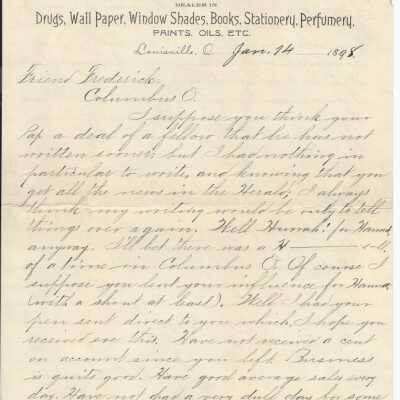 DEALER IN
Drugs, Wall Paper, Window Shades, Books, Stationery, Perfumery,
PAINTS, OILS, ETC.
Louisville, O. Jan. 14 1898
Friend Frederick,
Columbus O.
I suppose you think your
a deal of a fellow that he has not
written sooner, but I had nothing in
particular to write, and knowing that you
get all the news in the Herald, I always
think my writing would be only to tell
things over again. Well Hurrah! for Hanna,
anyway. I'll bet there was a H———ll
of a time in Columbus O. Of course I
suppose you lent your influence for Hanna
(with a shout at least). Well I had your
pen sent direct to you which, I hope you
received ere this. Have not received a cent
on account since you left. Business
is quite good. Have good average sales every
day. Have not had a very dull day for some